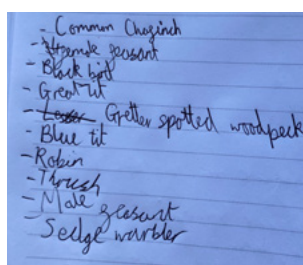 - Common Chaginch
- Female geasant
- Black bird
- Great tit
- Lesser Gretter spotted woodpeck
- Blue tit
- Robin
- Thrush
- Male geasant
- Sedge warbler